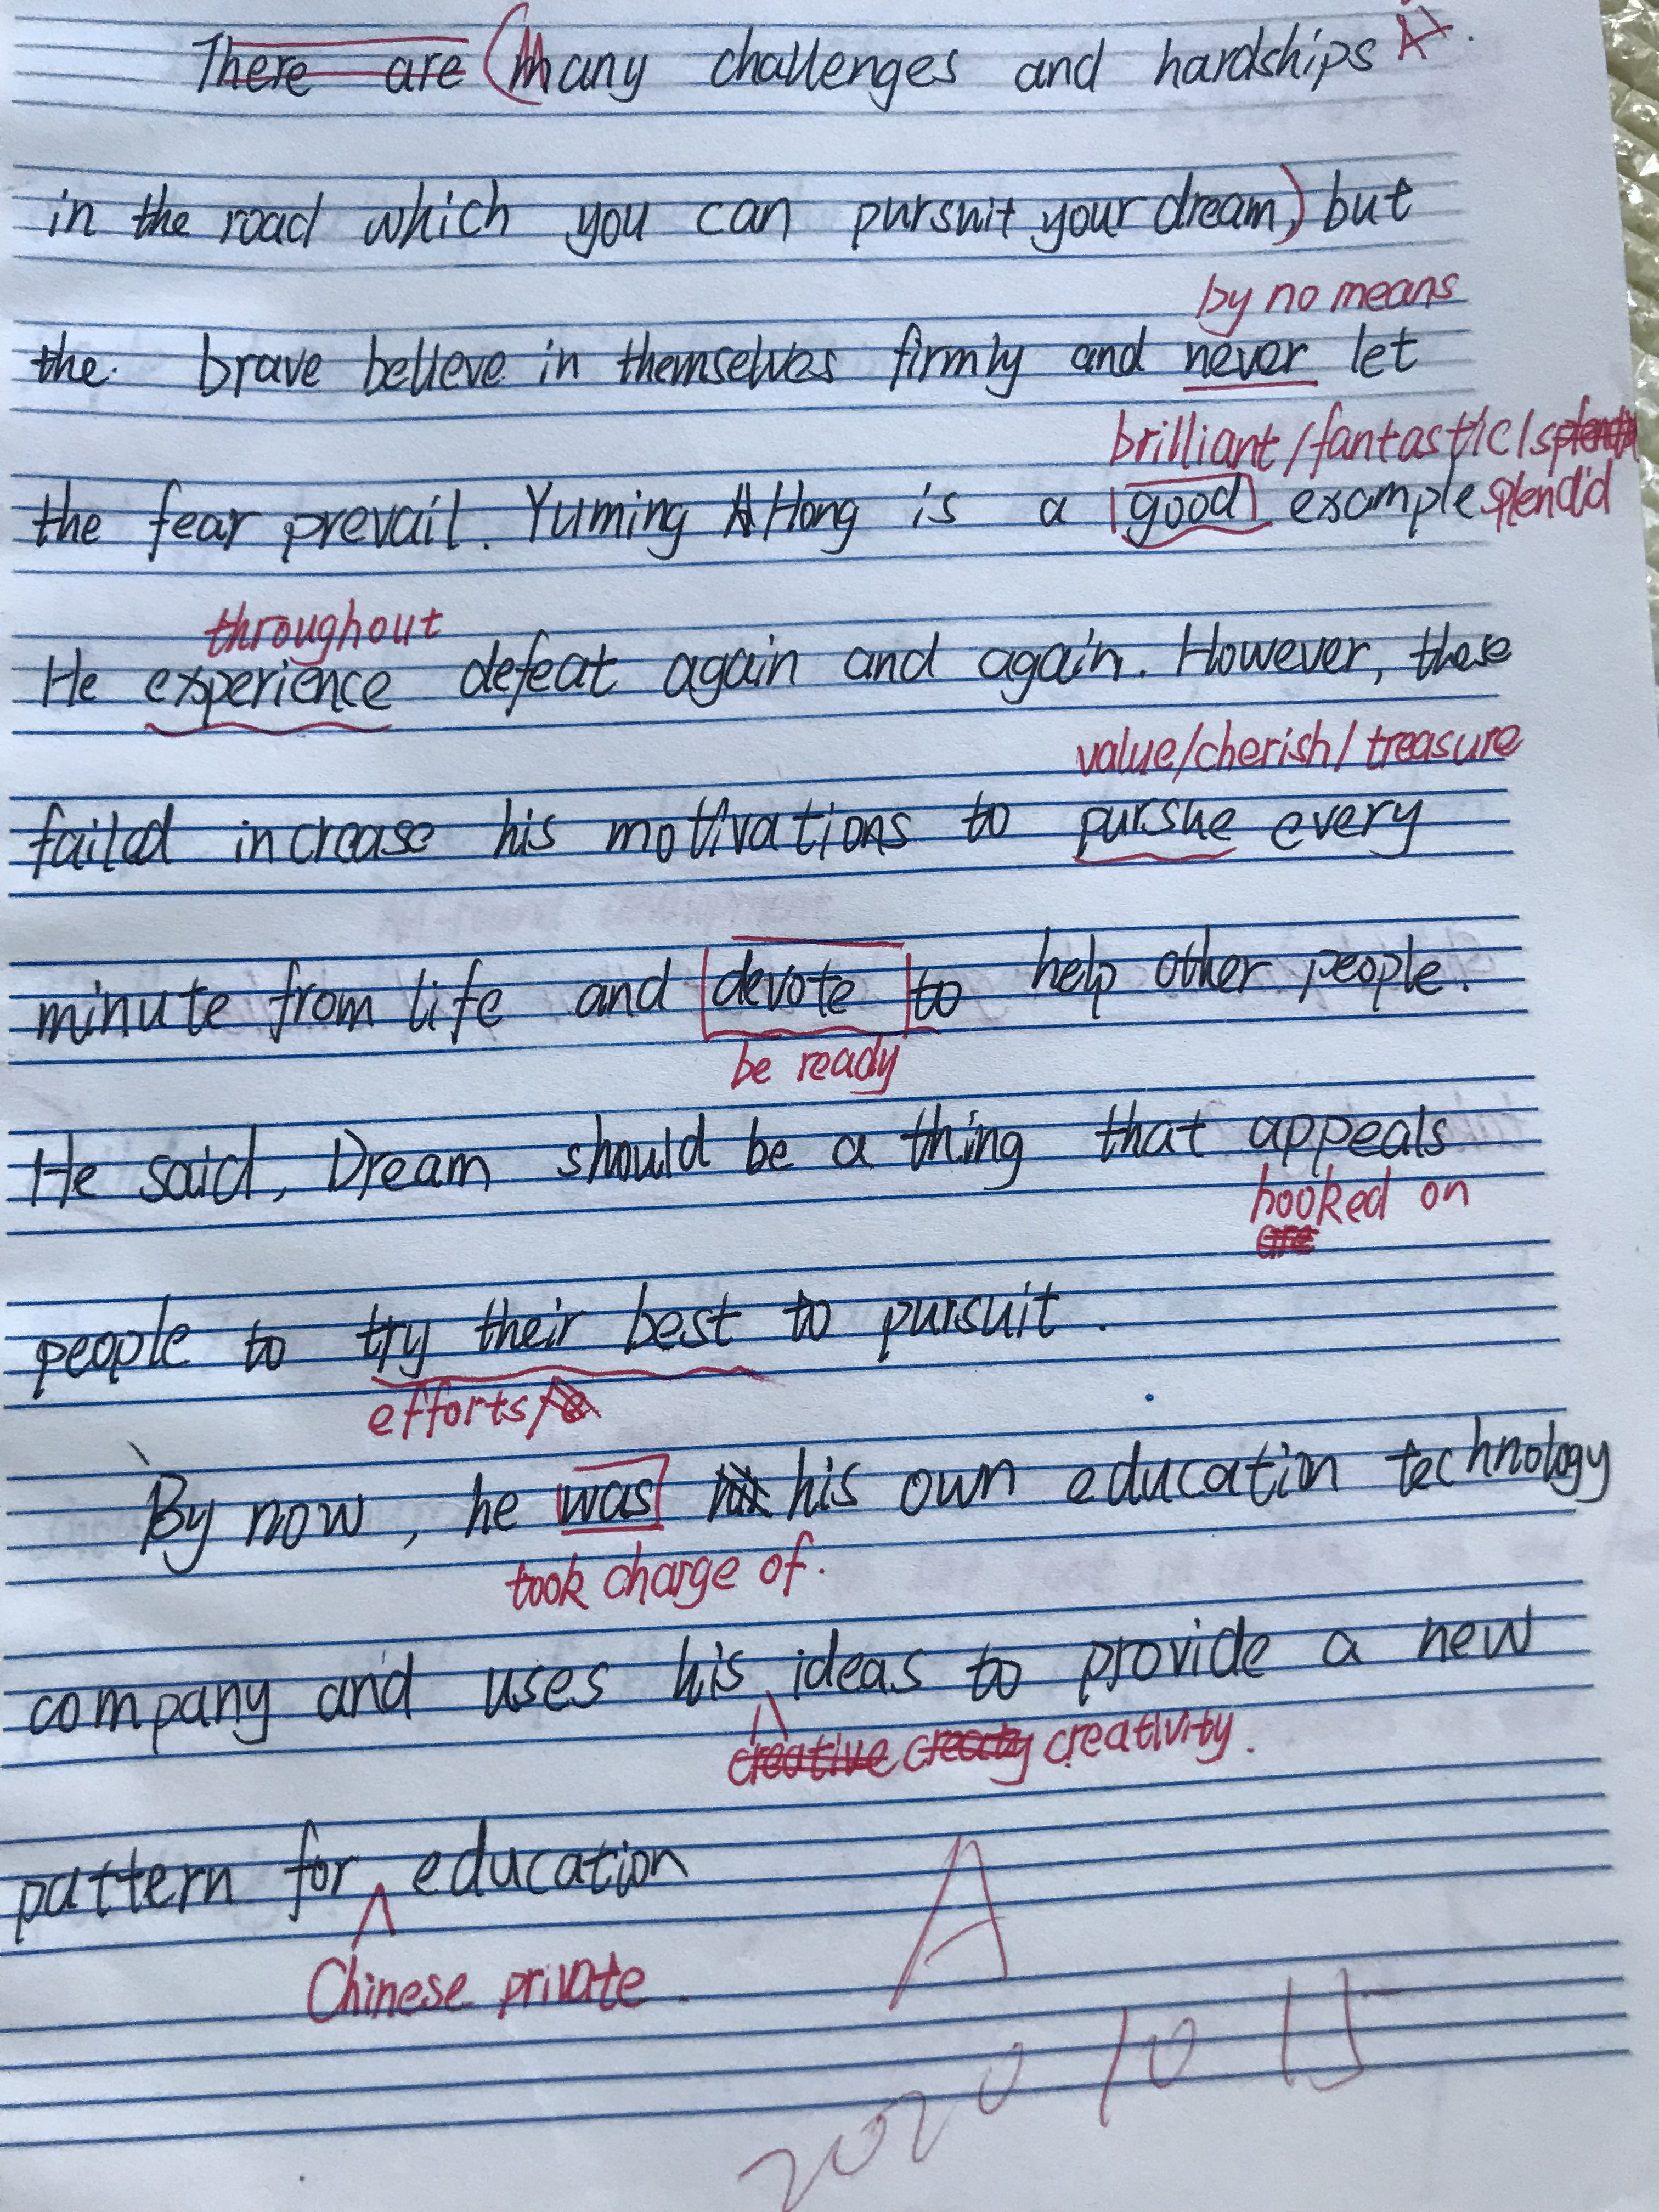 There are Many challenges and hardships A+.
in the road which you can pursuit your dream, but
by no means
the. brave believe in themselves firmly and never let
brilliant/fantastic/splend
the fear prevail. Yuming Hong is a good example splendid
throughout
He experience defeat again and again. However, these
value/cherish/treasure
failed increase his motivations to purshe every
minute from life and devote to help other people.
be ready
He said, Dream should be a thing that appeals
hooked on
are
people to try their best to pursuit.
efforts/
By now, he was his own education technology
took charge of.
company and uses his ideas to provide a new
creative creaty creativity.
pattern for education
Chinese private.
A
2020 10 15